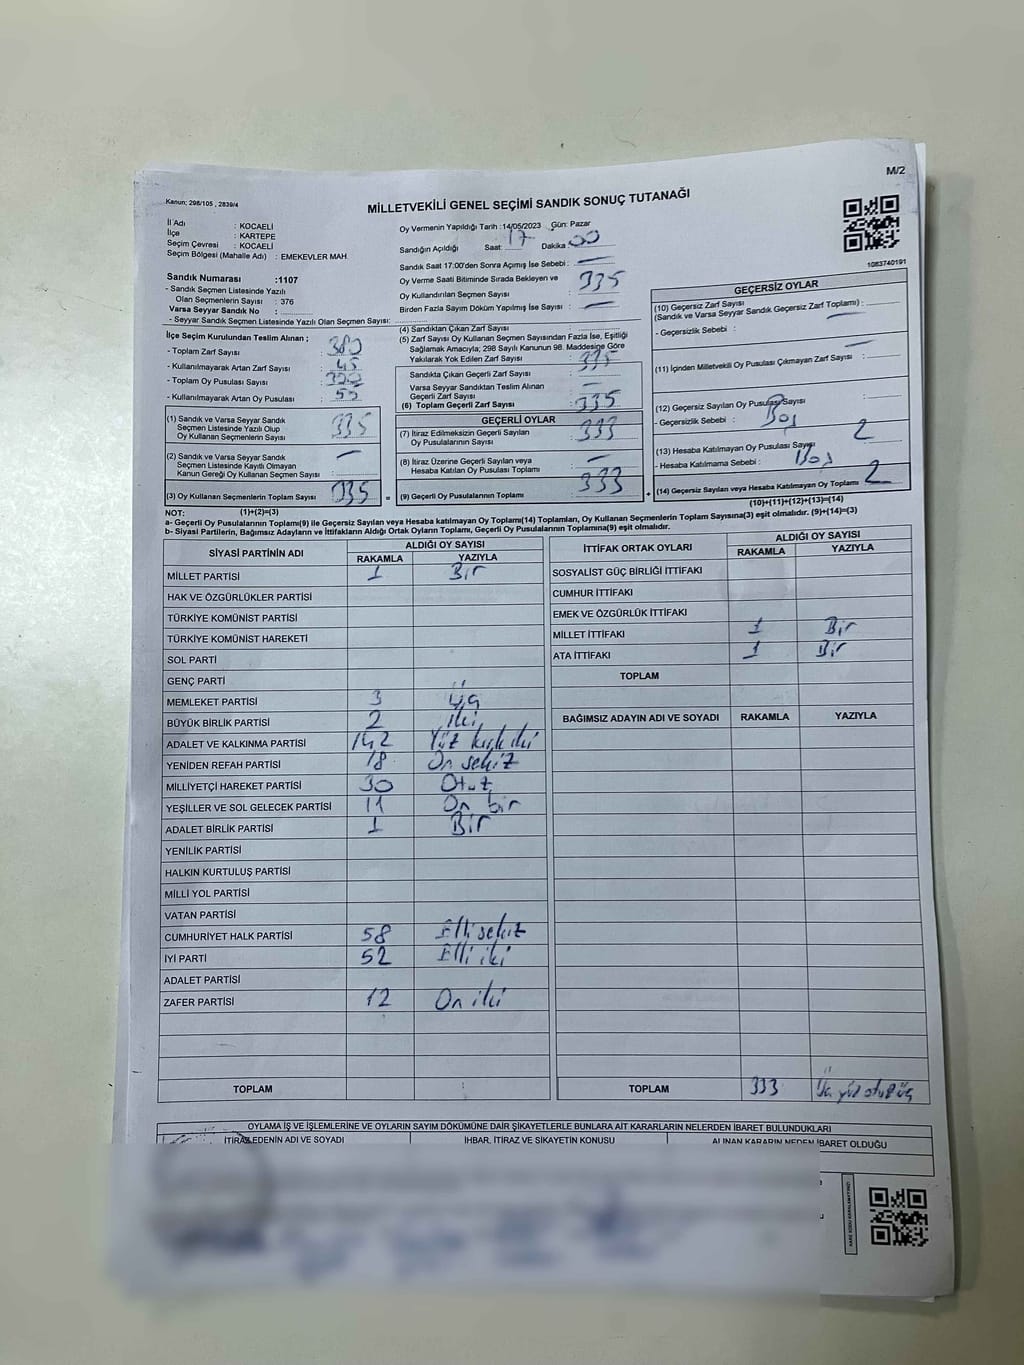 M/2
Kanun: 298/105 , 2839/4
MİLLETVEKİLİ GENEL SEÇİMİ SANDIK SONUÇ TUTANAĞI
İl Adı : KOCAELİ
İlçe : KARTEPE
Seçim Çevresi : KOCAELİ
Seçim Bölgesi (Mahalle Adı) : EMEKEVLER MAH.
Sandık Numarası :1107
- Sandık Seçmen Listesinde Yazılı
Olan Seçmenlerin Sayısı : 376
Varsa Seyyar Sandık No :
- Seyyar Sandık Seçmen Listesinde Yazılı Olan Seçmen Sayısı:
İlçe Seçim Kurulundan Teslim Alınan ;
- Toplam Zarf Sayısı : 380
- Kullanılmayarak Artan Zarf Sayısı : 45
- Toplam Oy Pusulası Sayısı :
- Kullanılmayarak Artan Oy Pusulası : 55
(1) Sandık ve Varsa Seyyar Sandık
Seçmen Listesinde Yazılı Olup : 335
Oy Kullanan Seçmenlerin Sayısı
(2) Sandık ve Varsa Seyyar Sandık
Seçmen Listesinde Kayıtlı Olmayan
Kanun Gereği Oy Kullanan Seçmen Sayısı : —
(3) Oy Kullanan Seçmenlerin Toplam Sayısı 335
Oy Vermenin Yapıldığı Tarih :14/05/2023 Gün: Pazar
Sandığın Açıldığı Saat: 17 Dakika: 00
Sandık Saat 17:00'den Sonra Açımış İse Sebebi : —
Oy Verme Saati Bitiminde Sırada Bekleyen ve
Oy Kullandırılan Seçmen Sayısı : 335
Birden Fazla Sayım Döküm Yapılmış İse Sayısı : —
(4) Sandıktan Çıkan Zarf Sayısı :
(5) Zarf Sayısı Oy Kullanan Seçmen Sayısından Fazla İse, Eşitliği
Sağlamak Amacıyla; 298 Sayılı Kanunun 98. Maddesine Göre
Yakılarak Yok Edilen Zarf Sayısı : 335
Sandıkta Çıkan Geçerli Zarf Sayısı :
Varsa Seyyar Sandıktan Teslim Alınan
Geçerli Zarf Sayısı : —
(6) Toplam Geçerli Zarf Sayısı : 335
GEÇERLİ OYLAR
(7) İtiraz Edilmeksizin Geçerli Sayılan
Oy Pusulalarının Sayısı : 333
(8) İtiraz Üzerine Geçerli Sayılan veya
Hesaba Katılan Oy Pusulası Toplamı : —
(9) Geçerli Oy Pusulalarının Toplamı : 333
1083740191
GEÇERSİZ OYLAR
(10) Geçersiz Zarf Sayısı
(Sandık ve Varsa Seyyar Sandık Geçersiz Zarf Toplamı) : —
- Geçersizlik Sebebi :
(11) İçinden Milletvekili Oy Pusulası Çıkmayan Zarf Sayısı : —
(12) Geçersiz Sayılan Oy Pusulası Sayısı :
- Geçersizlik Sebebi : Boş
(13) Hesaba Katılmayan Oy Pusulası Sayısı 2
- Hesaba Katılmama Sebebi : Boş
(14) Geçersiz Sayılan veya Hesaba Katılmayan Oy Toplamı 2
NOT: (1)+(2)=(3)
(10)+(11)+(12)+(13)=(14)
a- Geçerli Oy Pusulalarının Toplamı(9) ile Geçersiz Sayılan veya Hesaba katılmayan Oy Toplamı(14) Toplamları, Oy Kullanan Seçmenlerin Toplam Sayısına(3) eşit olmalıdır. (9)+(14)=(3)
b- Siyasi Partilerin, Bağımsız Adayların ve İttifakların Aldığı Ortak Oyların Toplamı, Geçerli Oy Pusulalarının Toplamına(9) eşit olmalıdır.
SİYASİ PARTİNİN ADI
ALDIĞI OY SAYISI
RAKAMLA YAZIYLA
MİLLET PARTİSİ 1 Bir
HAK VE ÖZGÜRLÜKLER PARTİSİ
TÜRKİYE KOMÜNİST PARTİSİ
TÜRKİYE KOMÜNİST HAREKETİ
SOL PARTİ
GENÇ PARTİ
MEMLEKET PARTİSİ 3 Üç
BÜYÜK BİRLİK PARTİSİ 2 İki
ADALET VE KALKINMA PARTİSİ 142 Yüz kırk iki
YENİDEN REFAH PARTİSİ 18 On sekiz
MİLLİYETÇİ HAREKET PARTİSİ 30 Otuz
YEŞİLLER VE SOL GELECEK PARTİSİ 11 On bir
ADALET BİRLİK PARTİSİ 1 Bir
YENİLİK PARTİSİ
HALKIN KURTULUŞ PARTİSİ
MİLLİ YOL PARTİSİ
VATAN PARTİSİ
CUMHURİYET HALK PARTİSİ 58 Elli sekiz
İYİ PARTİ 52 Elli iki
ADALET PARTİSİ
ZAFER PARTİSİ 12 On iki
TOPLAM
İTTİFAK ORTAK OYLARI
ALDIĞI OY SAYISI
RAKAMLA YAZIYLA
SOSYALİST GÜÇ BİRLİĞİ İTTİFAKI
CUMHUR İTTİFAKI
EMEK VE ÖZGÜRLÜK İTTİFAKI
MİLLET İTTİFAKI 1 Bir
ATA İTTİFAKI 1 Bir
TOPLAM
BAĞIMSIZ ADAYIN ADI VE SOYADI RAKAMLA YAZIYLA
TOPLAM 333 Üç yüz otuz üç
OYLAMA İŞ VE İŞLEMLERİNE VE OYLARIN SAYIM DÖKÜMÜNE DAİR ŞİKAYETLERLE BUNLARA AİT KARARLARIN NELERDEN İBARET BULUNDUKLARI
İTİRAZ EDENİN ADI VE SOYADI İHBAR, İTİRAZ VE ŞİKAYETİN KONUSU ALINAN KARARIN NEDEN İBARET OLDUĞU